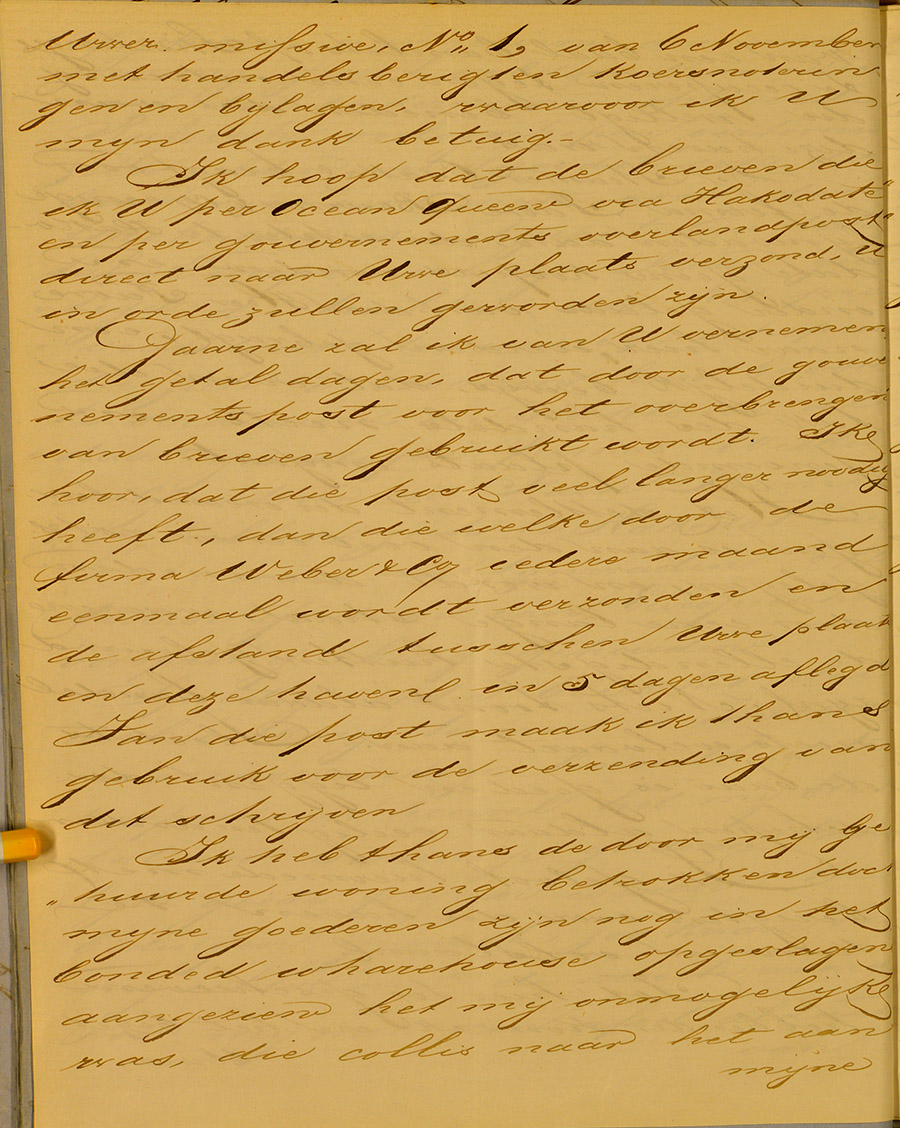 Uwer missive, No. 1, van 6 November
met handelsberigten koersnoterin
gen en bijlagen, waarvoor ik U
mijn dank betuig.-
Ik hoop dat de brieven die
ik U per Ocean Queen via Hakodate"
en per gouvernements overlandpost"
direct naar Uwe plaats verzond, U
in orde zullen geworden zijn.
Daarne zal ik van U vernemen
het getal dagen, dat door de gouve
nements post voor het overbrengen
van brieven gebruikt wordt. Ik
hoor, dat die post veel langer noodig
heeft, dan die welke door de
firma Weber & Co iedere maand
eenmaal wordt verzonden en
de afstand tusschen Uwe plaats
en deze haven in 5 dagen aflegd
Van die post maak ik thans
gebruik voor de verzending van
dit schrijven
Ik heb thans de door mij ge
"huurde woning betrokken doch
mijne goederen zijn nog in het
bonded wharehouse opgeslagen
aangezien het mij onmogelijk
was, die collis naar het aan
mijne